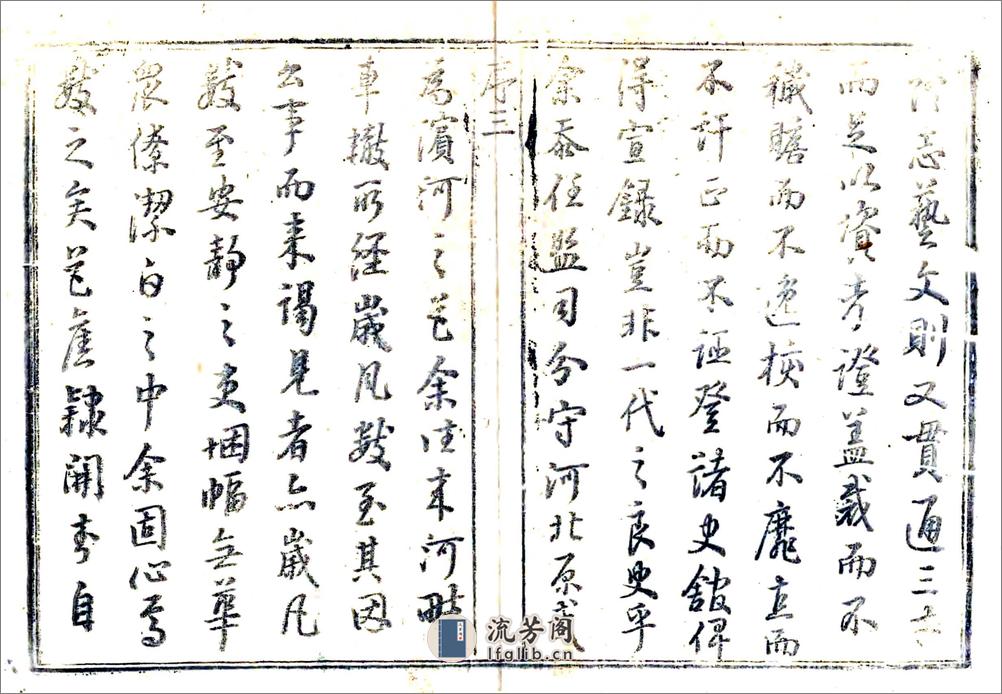 志藝文則又貫通三
而足以資考證蓋裁而不
穢贍而不核而不靡直而
不訐正而不誣登諸史館俾
得宣錄豈非一代之良史乎
余忝任監司分守河北原武
序三
為濱河之邑余往來河畔
車轍所經歲凡數至其因
公事而來謁見者亦歲凡
數至安靜之吏悃幅無華
眾僚潔白之中余固心焉
數之矣邑舊隸開自
流芳阁
lfglib.cn